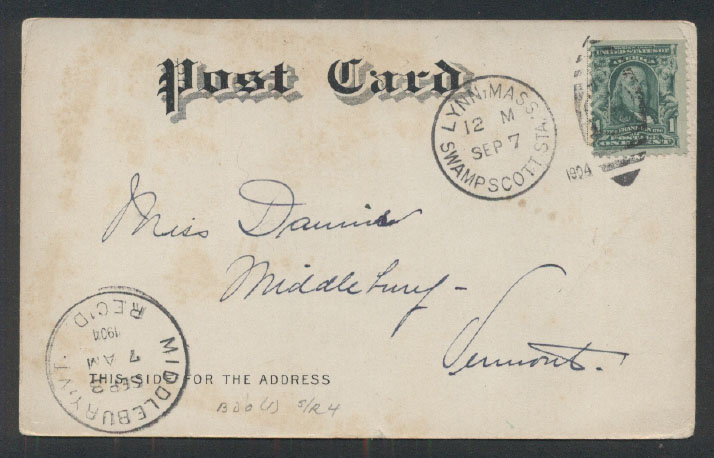 Post Card
LYNN, MASS.
12 M
SEP 7
SWAMPSCOTT STA.
1904
UNITED STATES OF
AMERICA
1
POSTAGE
ONE CENT
Miss
Middlebury
Vermont.
REC'D
1904
7
AM
SEP
MIDDLEBURY, VT.
THIS SIDE FOR THE ADDRESS